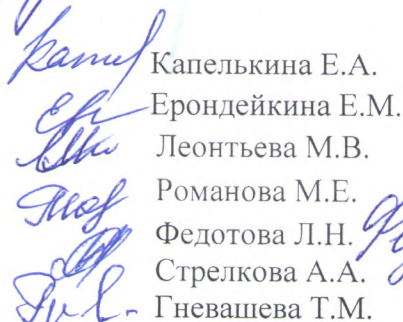 Капелькина Е.А.
Ерондейкина Е.М.
Леонтьева М.В.
Романова М.Е.
Федотова Л.Н.
Стрелкова А.А.
Гневашева Т.М.